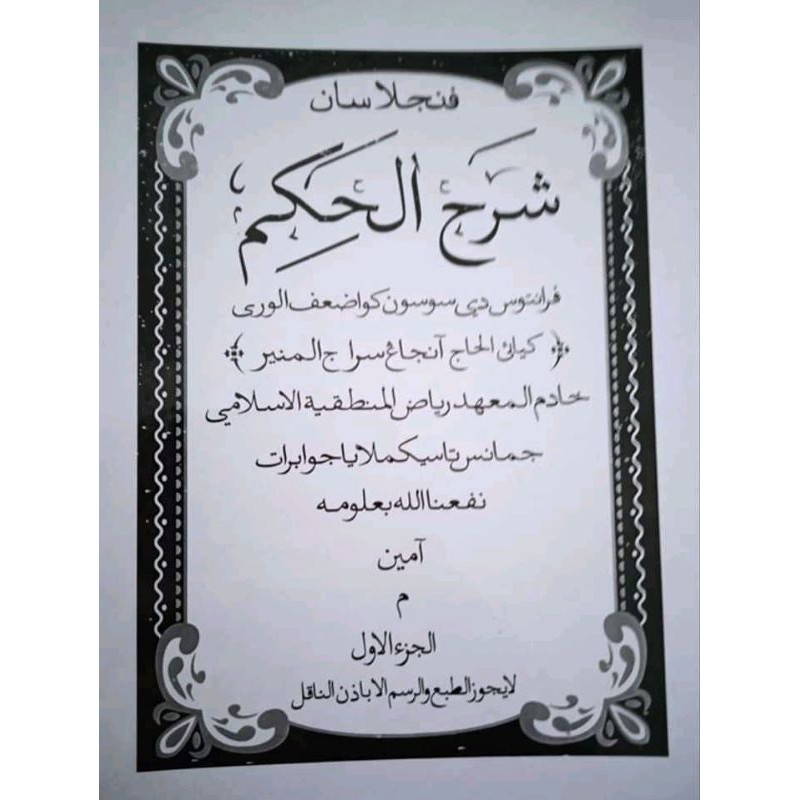 فنجلاسان
شرح الحكم
فرانتوس دي سوسون كو اضعف الورى
﴿ كيائى الحاج آنجاغ سراج المنير ﴾
خادم المعهد رياض المنطقية الاسلامي
جمانس تاسيكملايا جوا برات
نفعنا الله بعلومه
آمين
م
الجزء الاول
لايجوز الطبع والرسم الا باذن الناقل